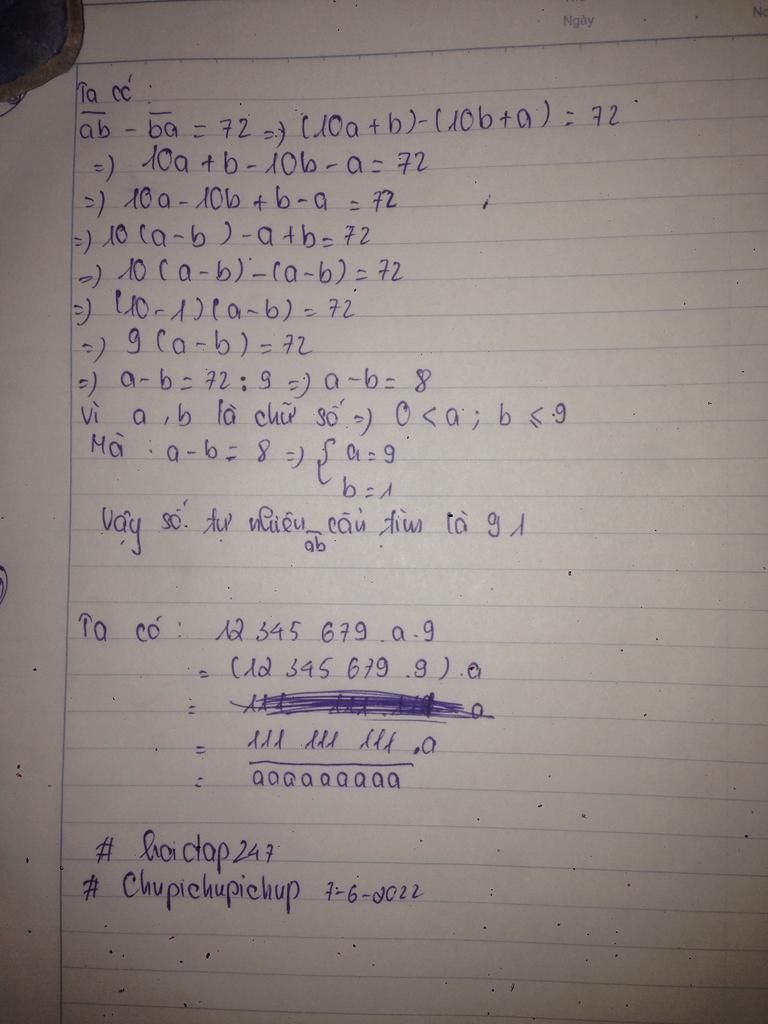 Ngày
No
Ta có :
ab - ba = 72 => (10a + b) - (10b + a) = 72
=) 10a + b - 10b - a = 72
=) 10a - 10b + b - a = 72
=) 10 (a - b ) - a + b = 72
=) 10 (a - b) - (a - b) = 72
=) (10 - 1) (a - b) = 72
=) 9 (a - b) = 72
=) a - b = 72 : 9 =) a - b = 8
Vì a , b là chữ số =) 0 < a ; b ≤ 9
Mà : a - b = 8 =) { a = 9
b = 1
Vậy số tự nhiên ab cần tìm là 91
Ta có : 12 345 679 . a . 9
= (12 345 679 . 9 ) . a
= 111 111 111 . a
= aaaaaaaaa
# hoidap247
# Chupichupichup 7-6-2022